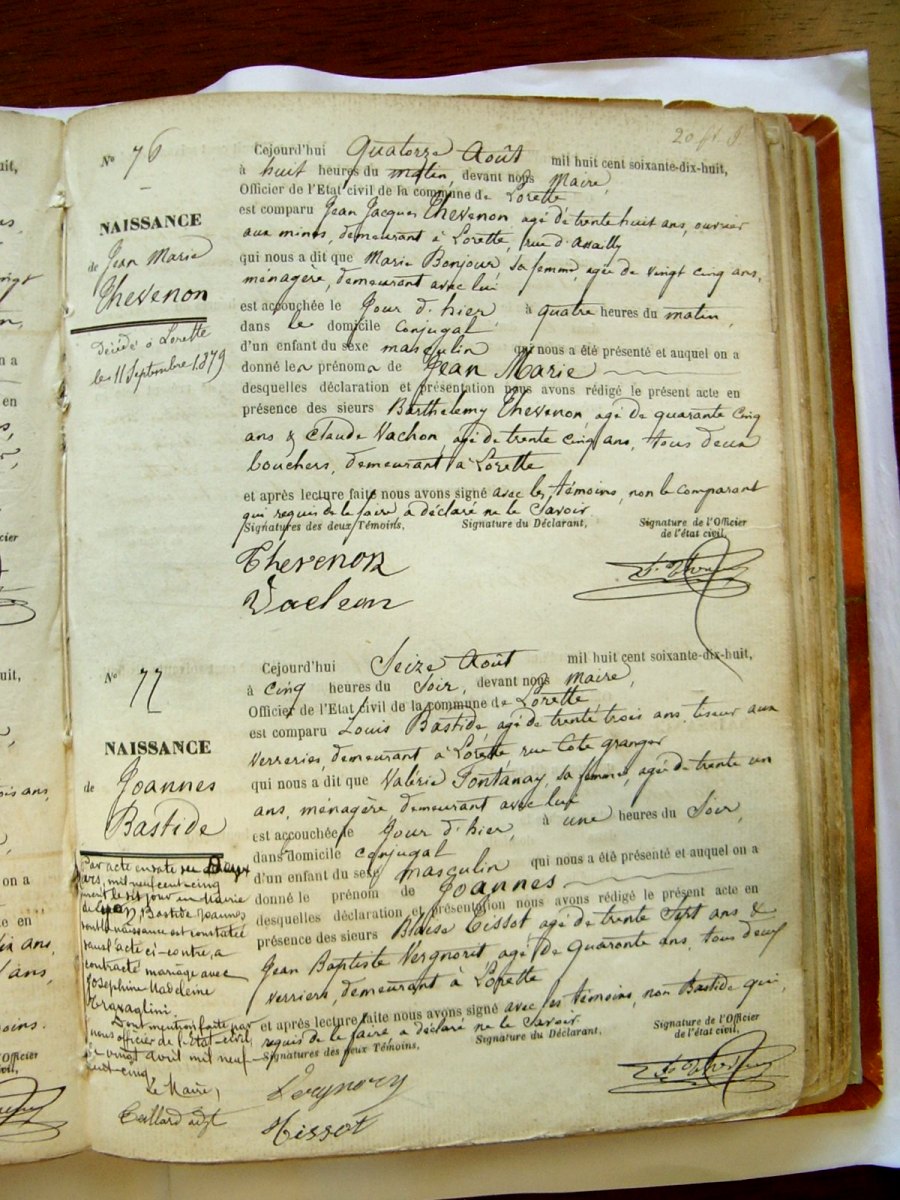 Nº 76
NAISSANCE
de Jean Marie
Thevenon
Décédé à Lorette
les 11 Septembre 1879
Cejourd'hui Quatorze Août mil huit cent soixante-dix-huit,
à huit heures du matin, devant nous Maire,
Officier de l'Etat civil de la commune de Lorette
est comparu Jean Jacques Thevenon agé de trente huit ans, ouvrier
aux mines, demeurant à Lorette, rue d'
qui nous a dit que Marie Bonjour, sa femme, agée de vingt cinq ans,
ménagère, demeurant avec lui
est accouchée le Jour d'hier à quatre heures du matin,
dans le domicile conjugal
d'un enfant du sexe masculin qui nous a été présenté et auquel on a
donné les prénoms de Jean Marie
desquelles déclaration et présentation nous avons rédigé le présent acte en
présence des sieurs Barthelemy Thevenon agé de quarante cinq
ans & Claude Vachon, agé de trente cinq ans, tous deux
bouchers, demeurant à Lorette
et après lecture faite nous avons signé avec les témoins, non le comparant
qui requis de le faire a déclaré ne le Savoir.
Signatures des deux Témoins, Signature du Déclarant, Signature de l'Officier
de l'état civil,
Thevenon
Vachon
Nº 77
NAISSANCE
de Joannes
Bastide
Par acte en date du
mars, mil neuf cent cinq
en Mairie
de Bastide Joannes
dont la naissance est constatée
dans l'acte ci-contre, a
contracté mariage avec
Josephine Madeleine
Travaglini.
Dont mention faite par
nous officier de l'Etat-civil,
le vingt avril mil neuf-
cent-cinq
Le Maire,
Cejourd'hui Seize Août mil huit cent soixante-dix-huit,
à cinq heures du Soir, devant nous Maire,
Officier de l'Etat civil de la commune de Lorette
est comparu Louis Bastide, agé de trente trois ans, tiseur aux
verreries, demeurant à Lorette rue Côte granger
qui nous a dit que Valérie Fontanay, sa femme, agée de trente un
ans, ménagère, demeurant avec lui
est accouchée le Jour d'hier, à une heures du Soir,
dans domicile conjugal
d'un enfant du sexe masculin qui nous a été présenté et auquel on a
donné le prénom de Joannes
desquelles déclaration et présentation nous avons rédigé le présent acte en
présence des sieurs Blaise Tissot agé de trente Sept ans &
Jean Baptiste Vergnory agé de Quarante ans, tous deux
verriers, demeurant à Lorette
et après lecture faite nous avons signé avec les témoins, non Bastide qui,
requis de le faire a déclaré ne le Savoir.
Signatures des deux Témoins, Signature du Déclarant, Signature de l'Officier
de l'état civil,
Vergnory
Tissot